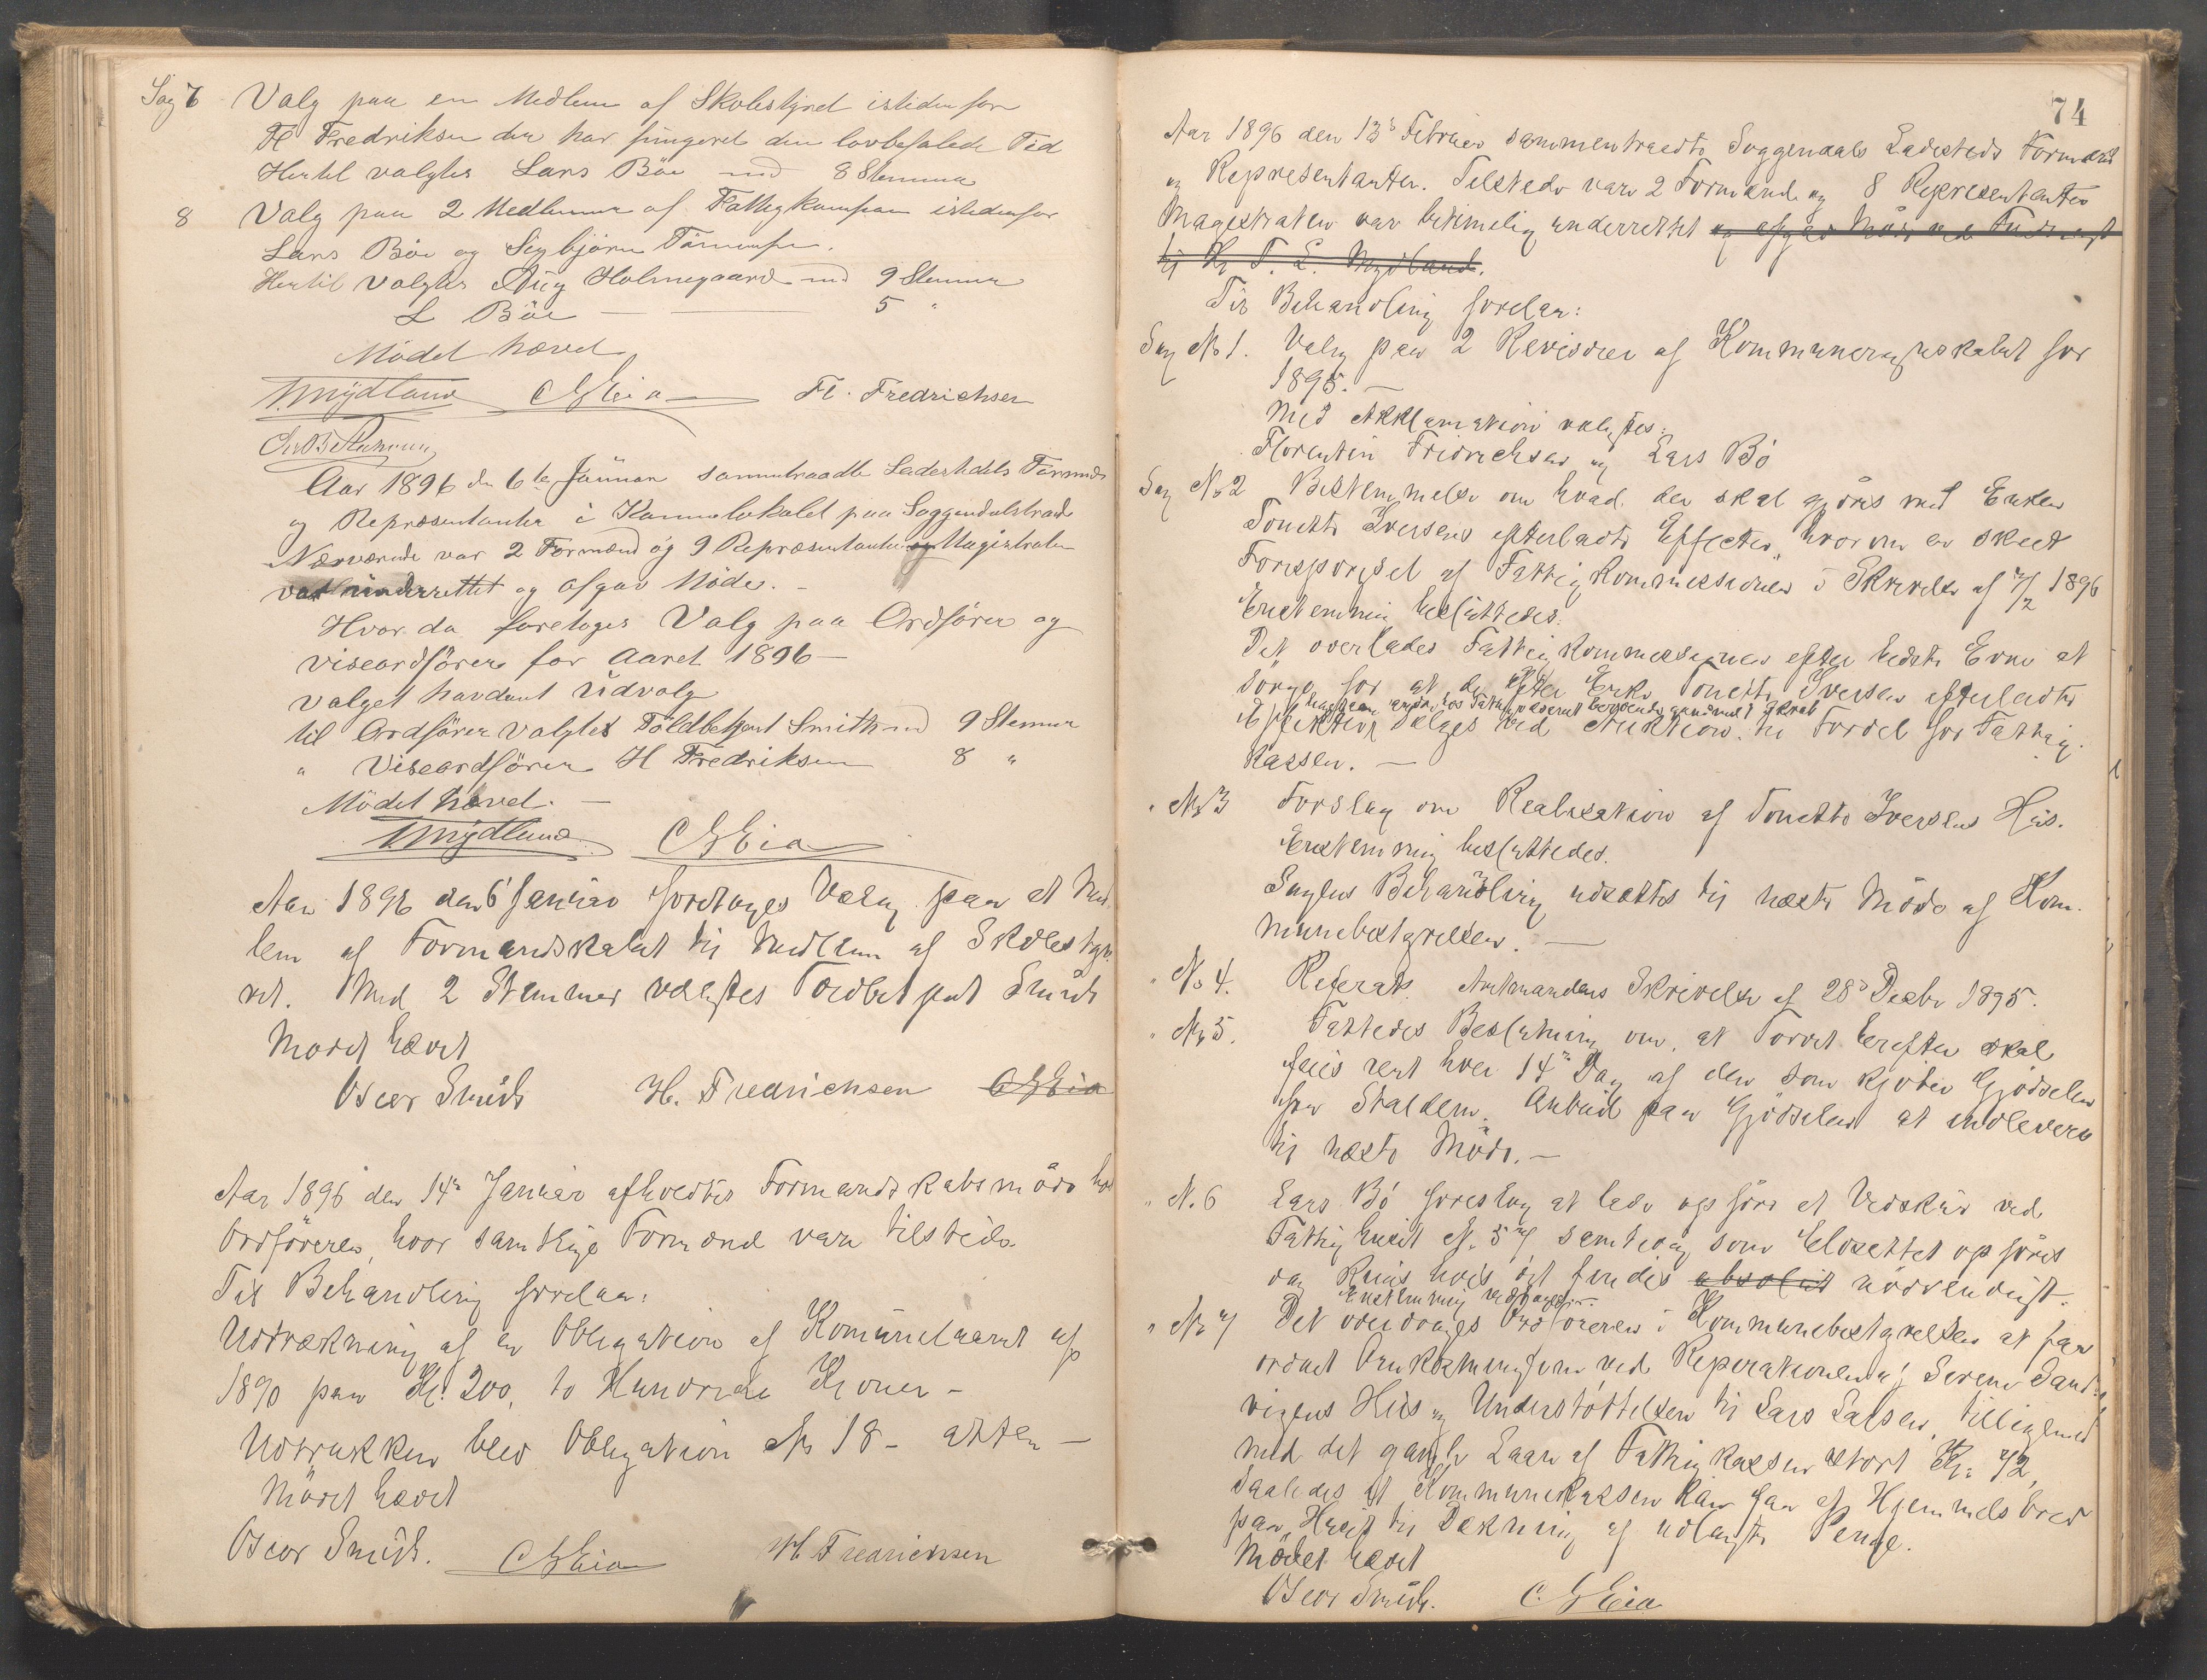 Sag 7 Valg paa en Medlem af Skolestyret istedenfor
Fl Fredriksen der har fungeret den lovbefalede Tid
Hertil valgtes Lars Böe med 8 Stemmer
8 Valg paa 2 Medlemmer af Fattigkomisionen istedenfor
Lars Böe og Sigbjörn
Hertil valgtes Aug Holmegaard med 9 Stemmer
L Böe — 5 "
Mödet hævet
T. Mydland C G Eia Fl. Fredrichsen
Aar 1896 den 6te Januar sammentraadte Ladestedets Formænd
og Repræsentanter i Kommunelokalet paa Soggendalstrand
Nærværende var 2 Formænd og 9 Repræsentanter og Magistraten
var underrettet og afgav Möde. -
Hvor da foretoges Valg paa Ordförer og
viseordförer for Aaret 1896 —
valget havde saadant Udvalg
til Ordförer valgtes Toldbetjent Smith med 9 Stemmer
" Viseordförer H Fredriksen 8 "
Mödet hævet. —
T Mydland C G Eia
Aar 1896 den 6' Januar foretoges Valg paa et Med-
lem af Formandskabet til Medlem af Skolesty-
ret. Med 2 Stemmer valgtes Toldbetjent Smith
Mödet hævet
Oscar Smith H. Fredrichsen C G Eia
Aar 1896 den 14de Januar afholdtes Formandskabsmöde hos
Ordföreren, hvor samtlige Formænd vare tilstede.
Til Behandling forelaa:
Udtrækning af en Obligation af Komunelaanet af
1890 paa Kr. 200, to Hundrede Kroner -
Udtrukken blev Obligation No 18 - atten —
Mödet hævet
Oscar Smith. C G Eia H. Fredrichsen
74
Aar 1896 den 13de Februar sammentraadte Soggendals Ladesteds Formænd
og Representanter. Tilstede vare 2 Formænd og 8 Representanter
Magistraten var betimelig underrettet og afgav Möde ved Fuldmægt
til Hr T. E. Mydland.
Til Behandling forelaa:
Sag No 1. Valg paa 2 Revisorer af Kommuneregnskabet for
1895. —
Med Akklamation valgtes:
Florentin Fridrichsen og Lars Bö
Sag No 2 Bestemmelse om hvad der skal gjöres med Enken
Tonette Iversens efterladte Effecter, hvorom er skeet
Forespörgsel af Fattigkommissionen i Skrivelse af 7/2 1896
Enstemmig besluttedes:
Det overlades Fattigkommissionen efter bedste Evne at
sörge for at de efter Enke Tonette Iversen efterladte
Effekter sælges ved Auktion til Fordel for Fattig-
kassen. —
" No 3 Forslag om Realisation af Tonette Iversens Hus.
Enstemmig besluttedes.
Sagens Behandling udsættes til næste Möde af Kom-
munebestyrelsen. —
" No 4. Referat. Amtmandens Skrivelse af 28de Decbr 1895.
" No 5. Fattedes Beslutning om, at Torvet herefter skal
feies rent hver 14de Dag af den som kjöber Gjödselen
fra Stalden. Anbud paa Gjödselen at indlevere
til næste Möde. —
" N. 6 Lars Bö foreslog at lade opföre et Vedskur ved
Fattighuset No 57 samtidig som Closettet opföres
dog kuns hvis det findes absolut nödvendigt.
Enstemmig vedtaget.
" No 7 Det overdroges Ordföreren i Kommunebestyrelsen at faa
ordnet Omkostningerne ved Reperationen af Serene Sand-
vigens Hus og Understöttelsen til Lars Larsen, tilligemed
med det gamle Laan af Fattigkassen stort Kr. 72,
saaledes at Kommunekassen kan faa af Hjemmels Brev
paa Huset til Dækning af udlagte Penge.
Mödet hævet
Oscar Smith. C. G Eia